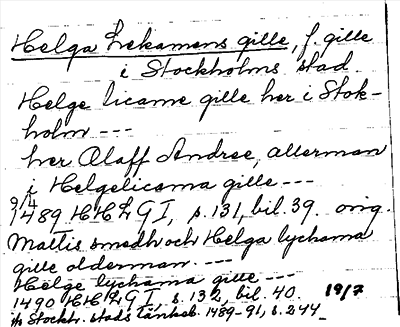 Helga Lekamens gille, f. gille
i Stockholms stad.
Helge licame gille her i Stok-
holm ---
her Olaff Andree, allerman
i Helgelicama gille ---
9/4
1489 HHLGI, s. 131, bil. 39. orig.
Mattis smedh och Helga lychama
gille olderman. ---
Helge lychama gille ---
1490 HHLGI, s. 132, bil. 40. 19/7
Stockh. stads tänkeb. 1489-91, s. 244